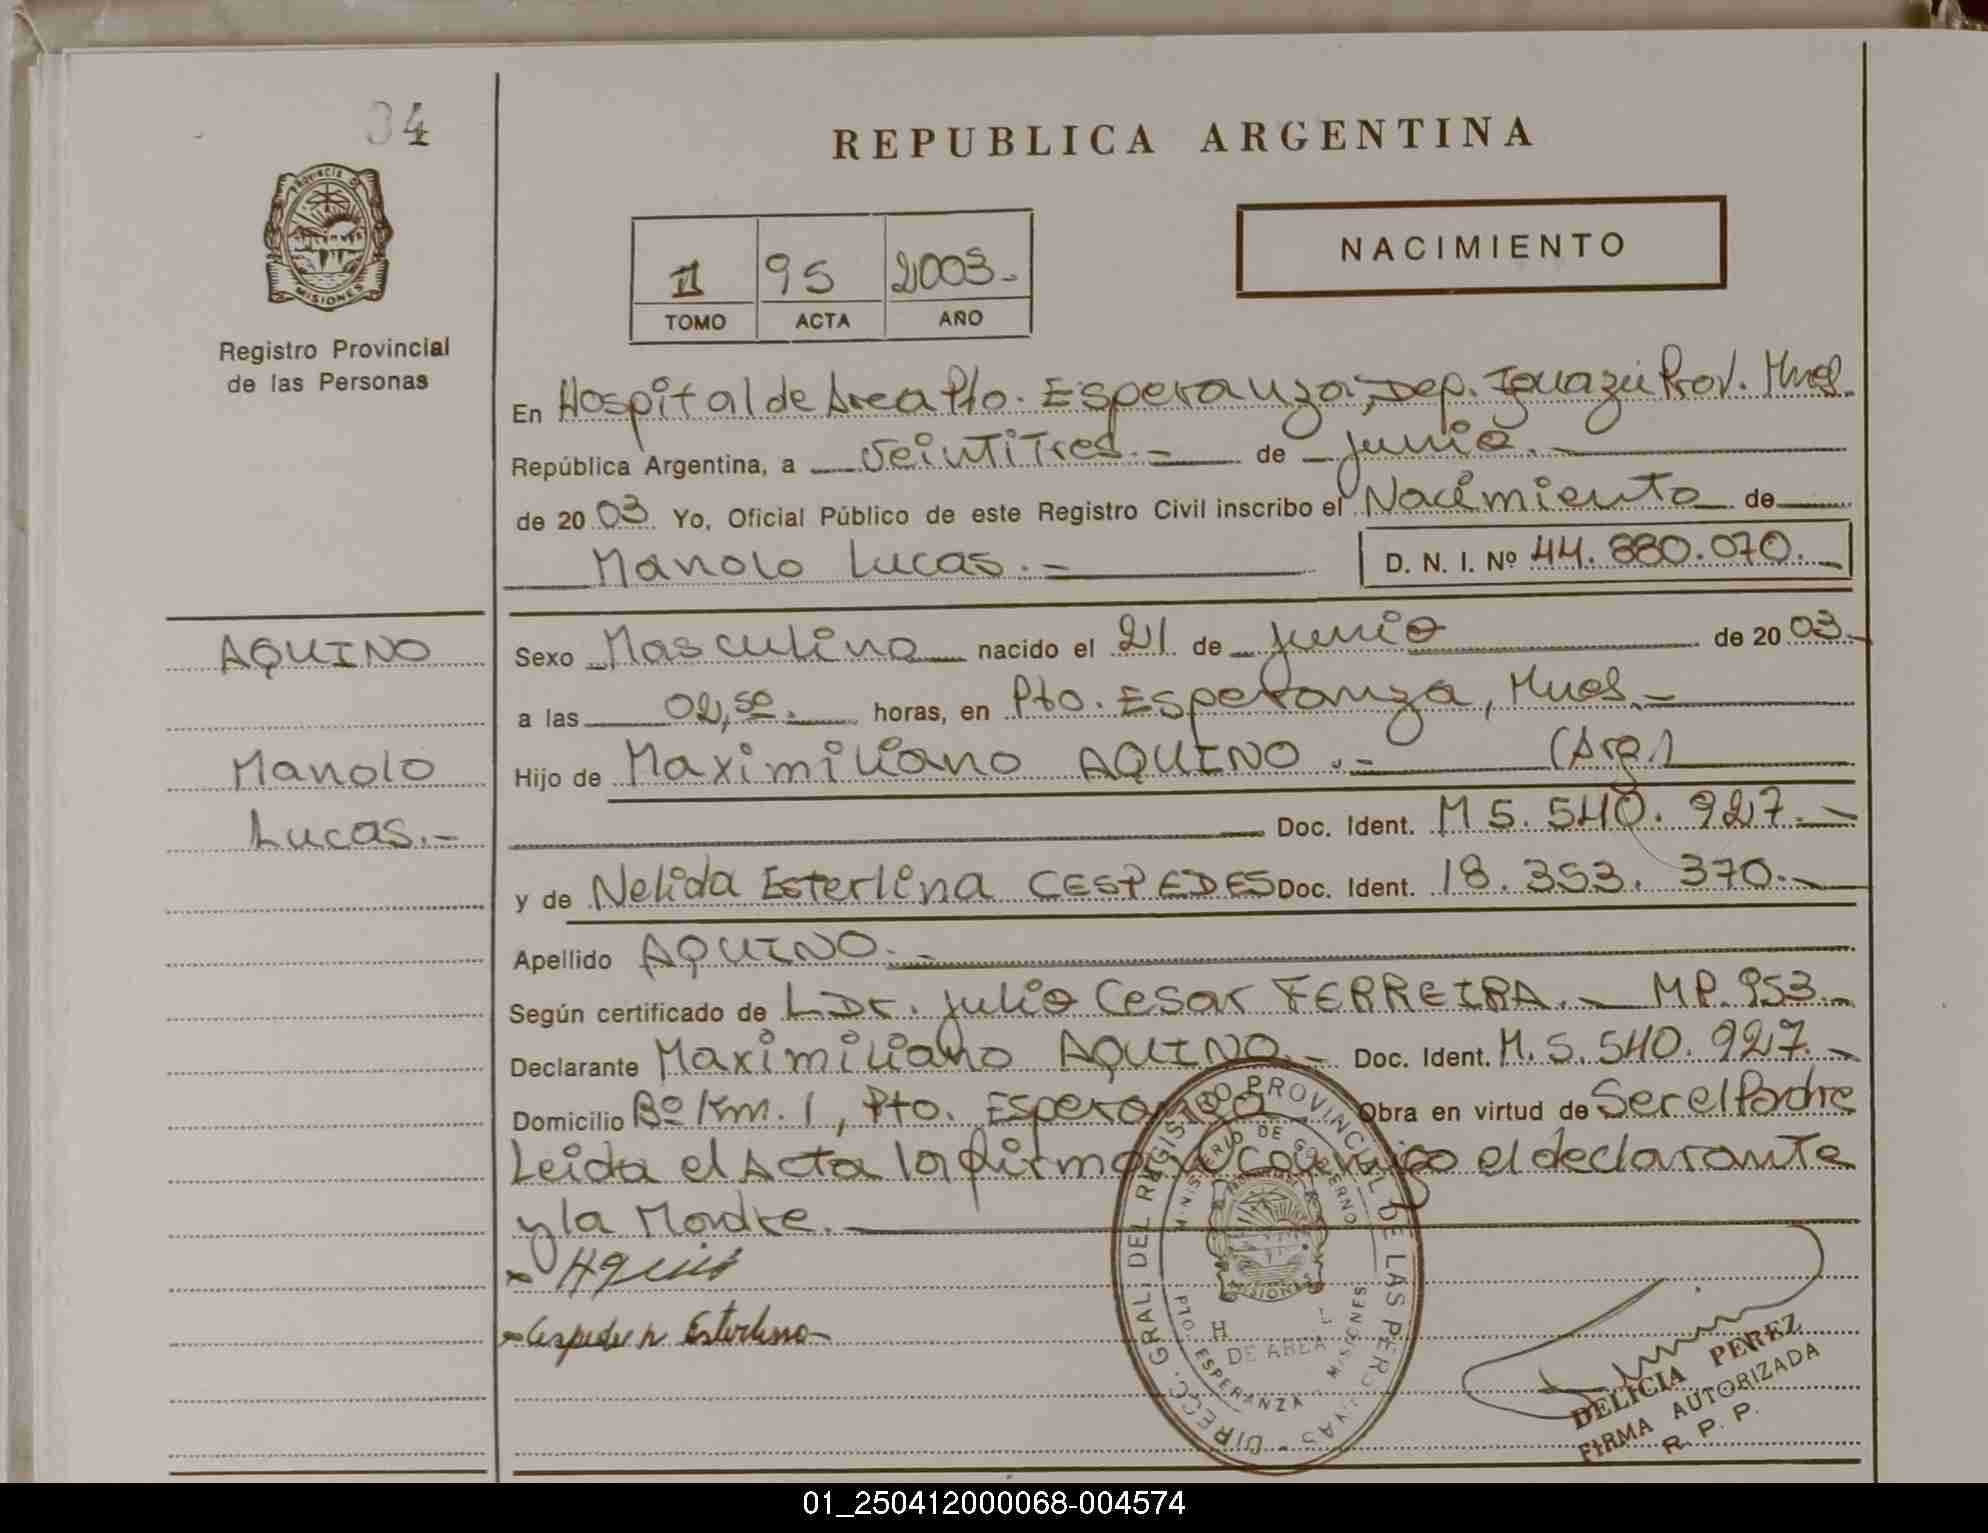 34
REPUBLICA ARGENTINA
PROVINCIA DE
MISIONES
Registro Provincial
de las Personas
NACIMIENTO
1 95 2003.-
TOMO ACTA AÑO
En Hospital de Area Pto. Esperanza, Dep. Iguazú Prov. Mnes.
República Argentina, a veintitres.- de junio.-
de 20 03. Yo, Oficial Público de este Registro Civil inscribo el Nacimiento de
Manolo Lucas.- D. N. I. Nº 44.880.070.-
AQUINO
Manolo
Lucas.-
Sexo Masculino nacido el 21 de junio de 20 03.-
a las 02,50. horas, en Pto. Esperanza, Mnes.-
Hijo de Maximiliano AQUINO.- (Arg.)
Doc. Ident. M 5.540.927.-
y de Nelida Esterlina CESPEDES Doc. Ident. 18.353.370.-
Apellido AQUINO.-
Según certificado de L Dr. Julio Cesar FERREIRA.- MP. 953.-
Declarante Maximiliano AQUINO.- Doc. Ident. M. 5.540.927.-
Domicilio Bº Km. 1, Pto. Esperanza Obra en virtud de Ser el Padre
Leida el Acta la firma conmigo el declarante
y la Madre.-
DIRECC. GRAL. DEL REGISTRO PROVINCIAL DE LAS PERSONAS
MINISTERIO DE GOBIERNO
MISIONES
DE AREA
PTO. ESPERANZA - MISIONES
DELICIA PEREZ
FIRMA AUTORIZADA
R. P. P.
01_250412000068-004574